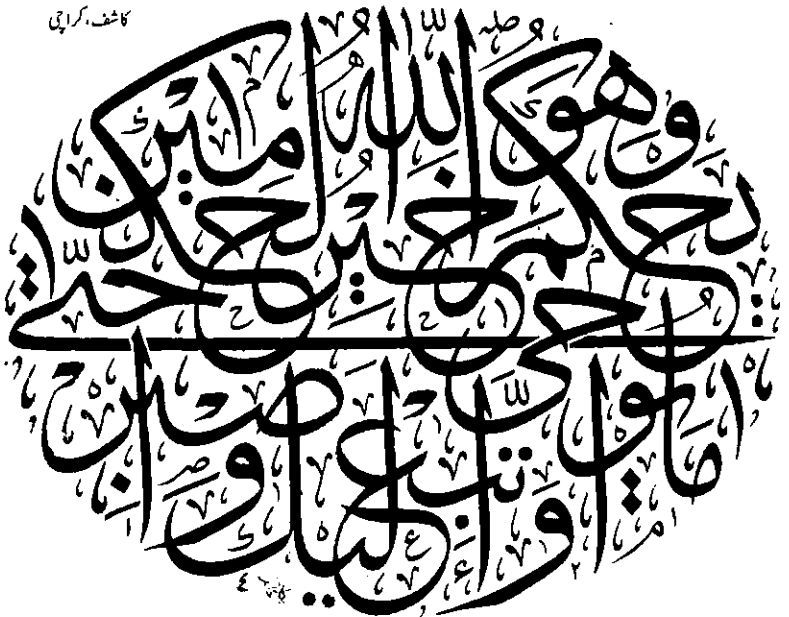 کاشف، کراچی
واتبع ما يوحى اليك واصبر
حتى يحكم الله
وهو خير الحكمين